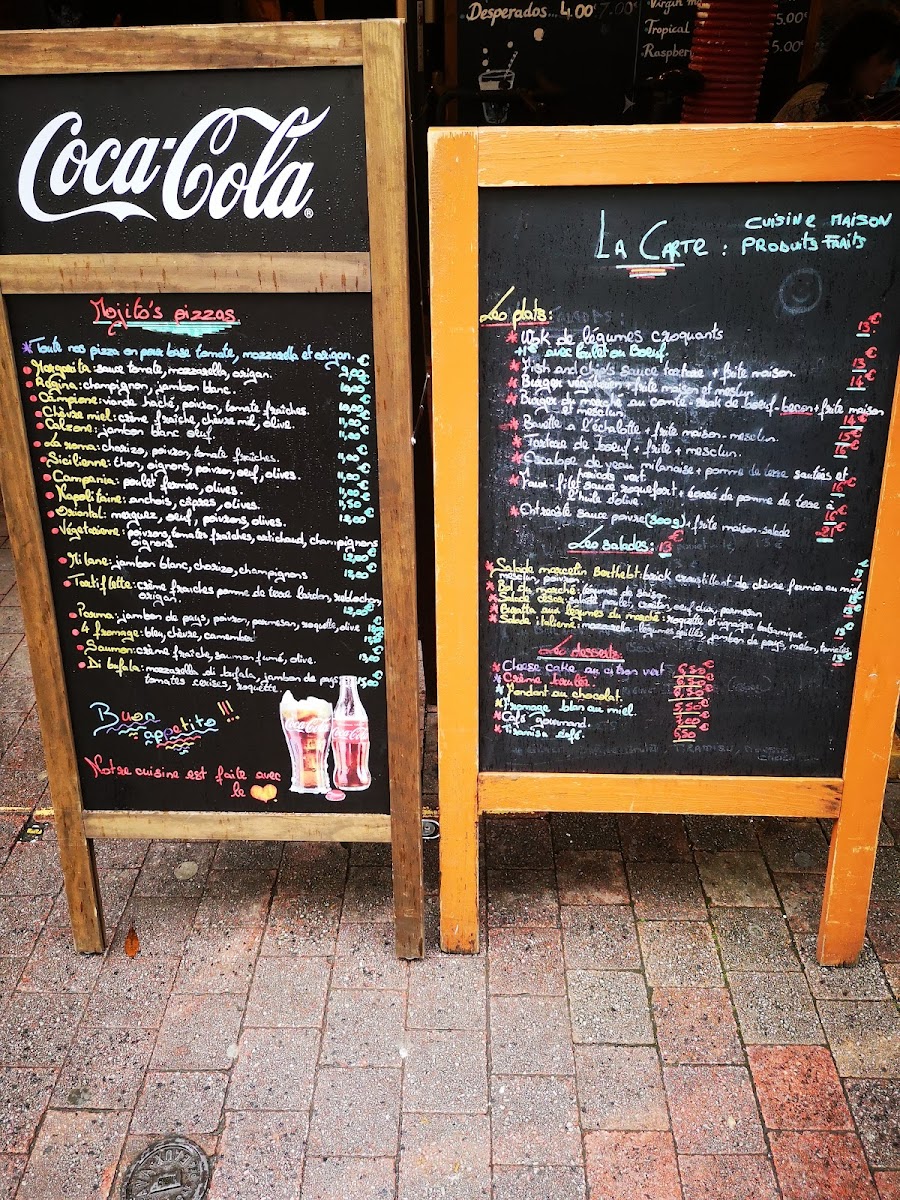 Desperados... 4.00 7.00
Virgin
Tropical
5.00
Raspber
5.00€
Coca-Cola
Mojito's pizzas
Toute nos pizza on pour base tomate, mozzarella et origan.
Margarita: sauce tomate, mozzarella, origan.
Regina: champignon, jambon blanc.
Campione: viande haché, poivron, tomate fraîches.
Chèvre miel: crème fraîche, chèvre miel, olive.
Calzone: jambon blanc oeuf.
La roma: chorizo, poivron, tomate fraîches.
Sicilienne: thon, oignons, poivron, oeuf, olives.
Campania: poulet fermier, olives.
Napolitaine: anchois, câpres, olives.
Oriental: merguez, oeuf, poivrons, olives.
Végétarienne: poivrons, tomates fraîches, artichaud, champignons
oignons.
Milane: jambon blanc, chorizo, champignons
Tartiflette: crème fraiches pomme de terre lardon, reblochon,
origan.
Parma: jambon de pays, poivron, parmesan, roquette, olive
4 fromage: bleu, chèvre, camembert
Saumon: crème fraîche, saumon fumé, olive.
Di bufala: mozzarella di bufala, jambon de pays
tomates cerises, roquette.
Buon
appetito!!!
Notre cuisine est faite avec
le
La Carte : CUISINE MAISON
PRODUITS FRAITS
Les plats:
Wok de légumes croquants 13€
+1€ avec Poulet ou Boeuf.
Fish and chip's sauce tartare + frite maison. 13€
Burger végétarien + frite maison et mesclun. 14€
Burger du marché au comté - steak de boeuf - becon + frite maison
et mesclun.
Bavette a l'échalotte + frite maison - mesclun.
Tartare de boeuf + frite + mesclun.
Escalope de veau milanaise + pomme de terre sautées et
haricots vert.
filet sauce roquefort + écrasé de pomme de terre à
l'huile d'olive
Entrecôte sauce poivre (300g) + frite maison - salade 21€
Les salades: 13€
Salade marcelin Berthelot: brick croustillant de chèvre fermier au miel
mesclun, poivron
Bol du marché: légumes de saison.
Salade césar: salade, poulet, croûton, oeuf dur, parmesan
Burratta aux légumes du marché: roquette et vinaigre balsamique.
Salade italienne: mozzarella - légumes grillés, jambon de pays, melon, tomates
Les desserts
Cheese cake au citron vert 6,50€
Crème brulée.
Fondant au chocolat.
Fromage blan au miel. 5,50€
Café gourmand. 7,00€
Tiramisu café. 6,50€